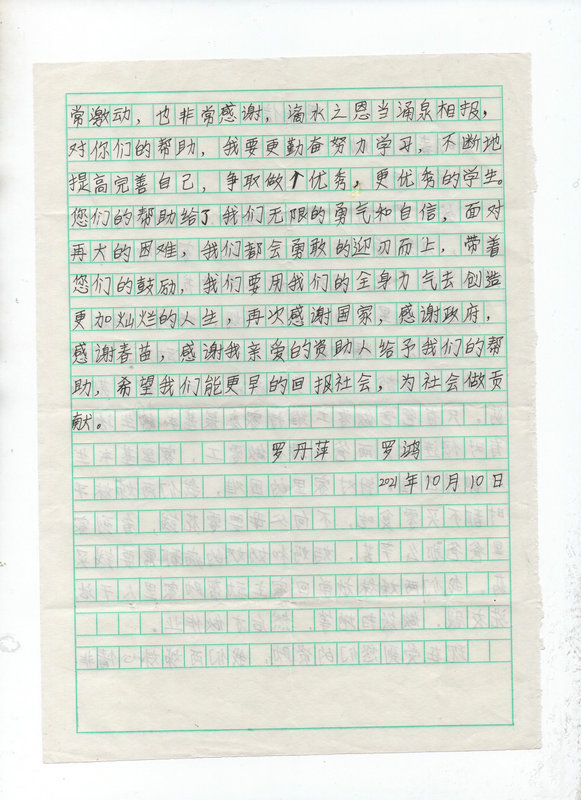 常激动，也非常感谢，滴水之恩当涌泉相报，
对你们的帮助，我要更勤奋努力学习，不断地
提高完善自己，争取做个优秀，更优秀的学生。
您们的帮助给了我们无限的勇气和自信，面对
再大的困难，我们都会勇敢的迎刃而上，带着
您们的鼓励，我们要用我们的全身力气去创造
更加灿烂的人生，再次感谢国家，感谢政府，
感谢春苗，感谢我亲爱的资助人给予我们的帮
助，希望我们能更早的回报社会，为社会做贡
献。
罗丹萍 罗鸿
2021年10月10日